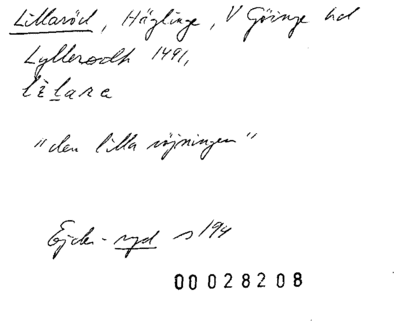 Lillaröd, Häglinge, V Göinge hd
Lyllerodh 1491,
lìlara
"den lilla röjningen"
Ejder-ryd s 194
00028208